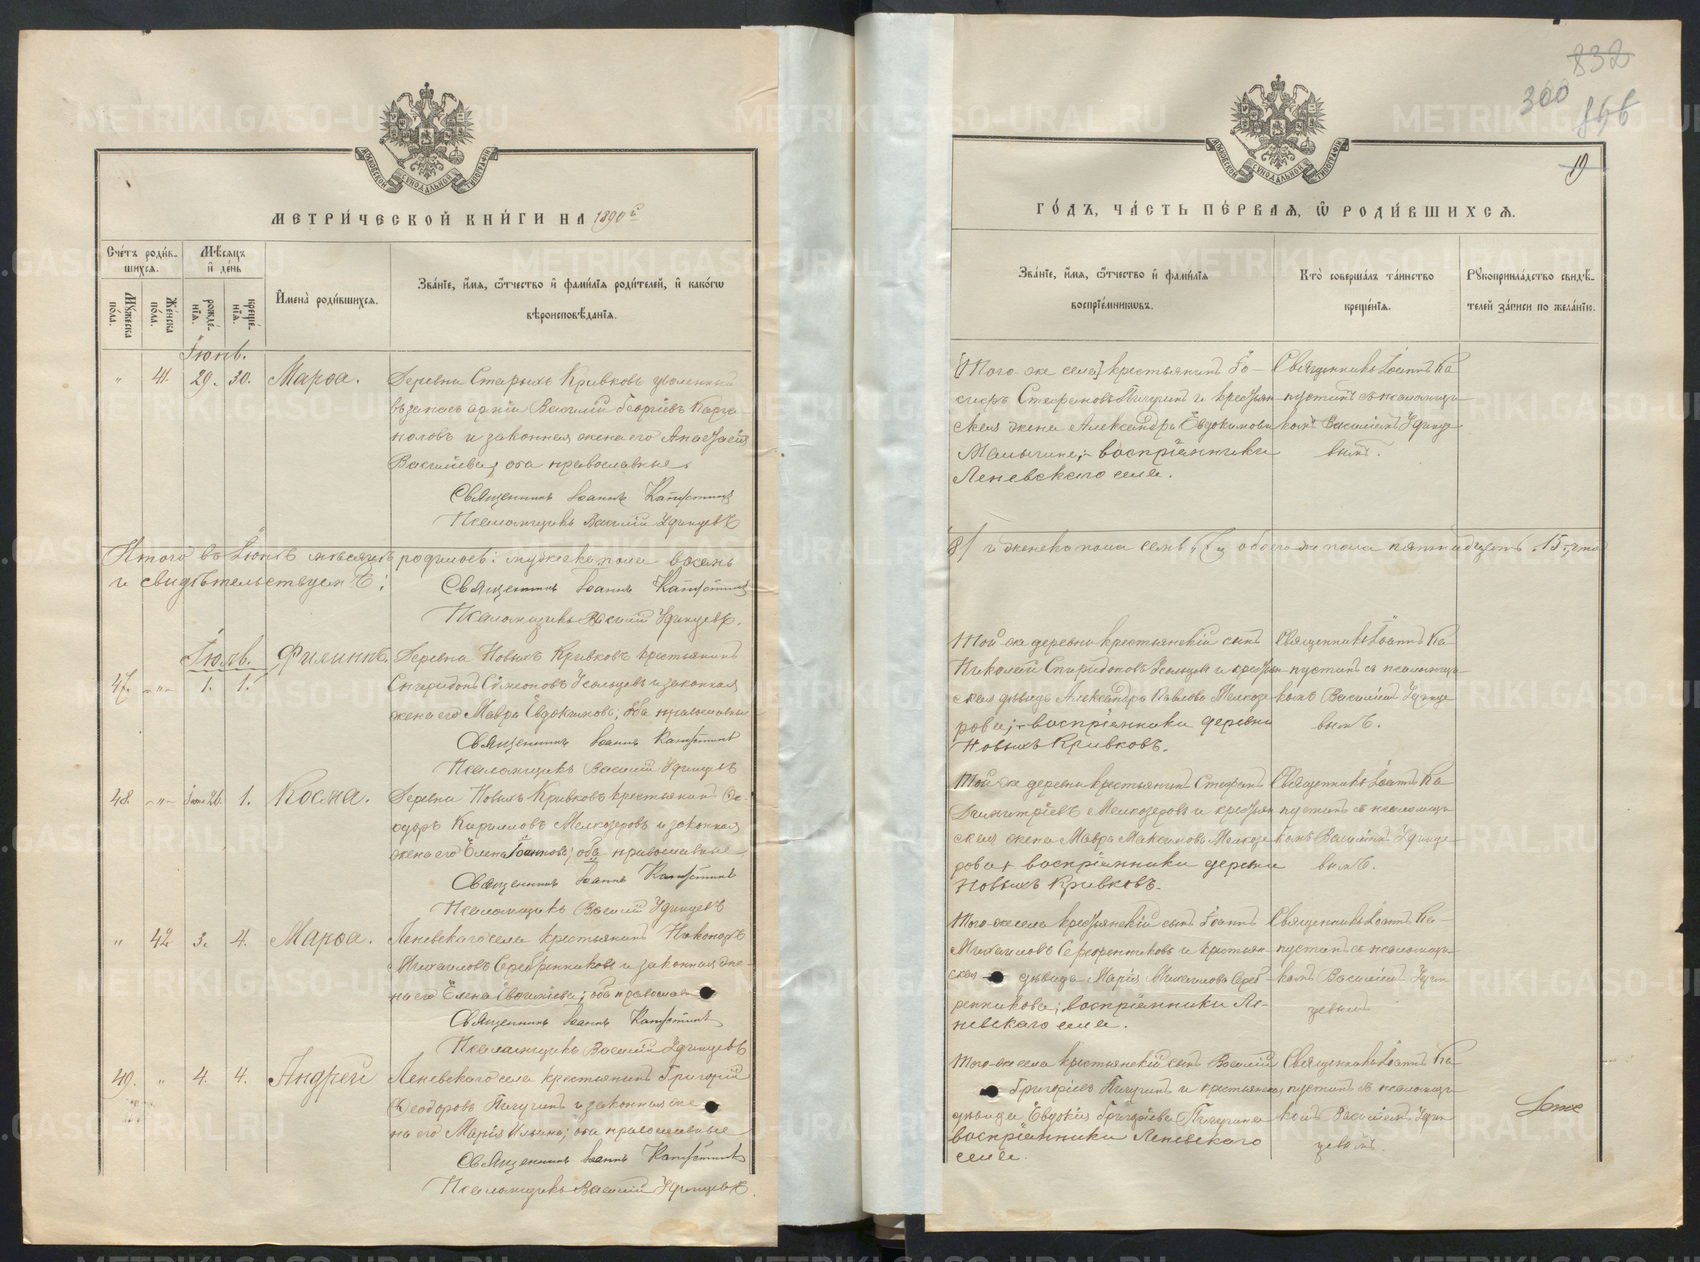 832
300
846
19
МОСКОВСКОЙ СѴНОДАЛЬНОЙ ТИПОГРАФІИ
МЕТРИ́ЧЕСКОЙ КНИ́ГИ НА 1890 й
Сче́тъ роди́в-
шихся.
Мѣ́сяцъ
и҆ де́нь
Мꙋжеска по́ла.
Же́нска по́ла.
рожде́-
нїѧ.
креще́-
нїѧ.
И҆мена̀ роди́вшихся.
Зва́нїе, и҆́мѧ, ѻ҆́тчество и҆ фами́лїѧ роди́телей, и҆ како́гѡ
вѣроисповѣ́данїѧ.
Іюнь.
" 41. 29. 30. Марѳа.
Деревни Старыхъ Кривковъ уволенный
въ запасъ арміи Василій Георгіевъ
и законная жена его Анастасія
Васильева, оба православные.
Священникъ Іоаннъ Капустинъ
Псаломщикъ Василій Удинцевъ
Итого въ Іюнѣ мѣсяцѣ родилось: мужеска пола восемь
и свидѣтельствуемъ:
Священникъ Іоаннъ Капустинъ
Псаломщикъ Василій Удинцевъ.
Іюль.
47. " 1. 1. Филиппъ.
Деревни Новыхъ Кривковъ крестьянинъ
Спиридонъ Симеоновъ Усольцевъ и законная
жена его Мавра Евдокимова; оба православные
Священникъ Іоаннъ Капустинъ
Псаломщикъ Василій Удинцевъ
48. " Іюня 26. 1. Косма.
Деревни Новыхъ Кривковъ крестьянинъ Ѳе-
одоръ Кирилловъ Мелкозеровъ и законная
жена его Елена Іоаннова; оба православные
Священникъ Іоаннъ Капустинъ
Псаломщикъ Василій Удинцевъ
" 42 3. 4. Марѳа.
Леневскаго села крестьянинъ Никаноръ
Михаиловъ Серебренниковъ и законная же-
на его Елена; оба православ
Священникъ Іоаннъ Капустинъ
Псаломщикъ Василій Удинцевъ
49. " 4. 4. Андрей
Леневскаго села крестьянинъ Григорій
Ѳеодоровъ Пичугинъ и законная же
на его Марія Ильина; оба православные
Священникъ Іоаннъ Капустинъ
Псаломщикъ Василій Удинцевъ.
МОСКОВСКОЙ СѴНОДАЛЬНОЙ ТИПОГРАФІИ
ГО́ДЪ, ЧА́СТЬ ПЕ́РВАѦ, Ѡ҆ РОДИ́ВШИХСѦ.
Зва́нїе, и҆́мѧ, ѻ҆́тчество и҆ фами́лїѧ
воспрїе́мникѡвъ.
Кто̀ соверша́лъ та́инство
креще́нїѧ.
Рꙋкоприкла́дство свидѣ́-
телей за́писи по жела́нїю.
[Того же села] крестьянинъ Іо-
сифъ Стефановъ Пичугинъ и крестьян-
ская жена Александра Евдокимова
Малыгина; воспріемники
Леневскаго села.
Священникъ Іоаннъ Ка
пустинъ съ псаломщи
комъ Василіемъ Удинце
вымъ.
8/ и женска пола семь, 7, обоего же пола пятнадцать, 15, что
Той же деревни крестьянскій сынъ
Николай Спиридоновъ Усольцевъ и крестьян
ская дѣвица Александра Павлова Мелкозе
рова; воспріемники деревни
Новыхъ Кривковъ.
Священникъ Іоаннъ Ка
пустинъ съ псаломщи
комъ Василіемъ Удинце
вымъ.
Той же деревни крестьянинъ Стефанъ
Димитріевъ Мелкозеровъ и крестьян
ская жена Мавра Максимова Мелкозе
рова, воспріемники деревни
Новыхъ Кривковъ.
Священникъ Іоаннъ Ка
пустинъ съ псаломщи
комъ Василіемъ Удинце
вымъ.
Того же села крестьянскій сынъ Іоаннъ
Михаиловъ Серебренниковъ и крестьян
ская дѣвица Марія Михаилова Сереб-
ренникова; воспріемники Ле-
невскаго села.
Священникъ Іоаннъ Ка-
пустинъ съ псаломщи
комъ Василіемъ Удин
цевымъ
Того же села крестьянскій сынъ Василій
Григоріевъ Пичугинъ и крестьянская
дѣвица Евдокія Григоріева Пичугина
воспріемники Леневскаго
села.
Священникъ Іоаннъ Ка
пустинъ съ псаломщи
комъ Василіемъ Удин
цевымъ.
METRIKI.GASO-URAL.RU